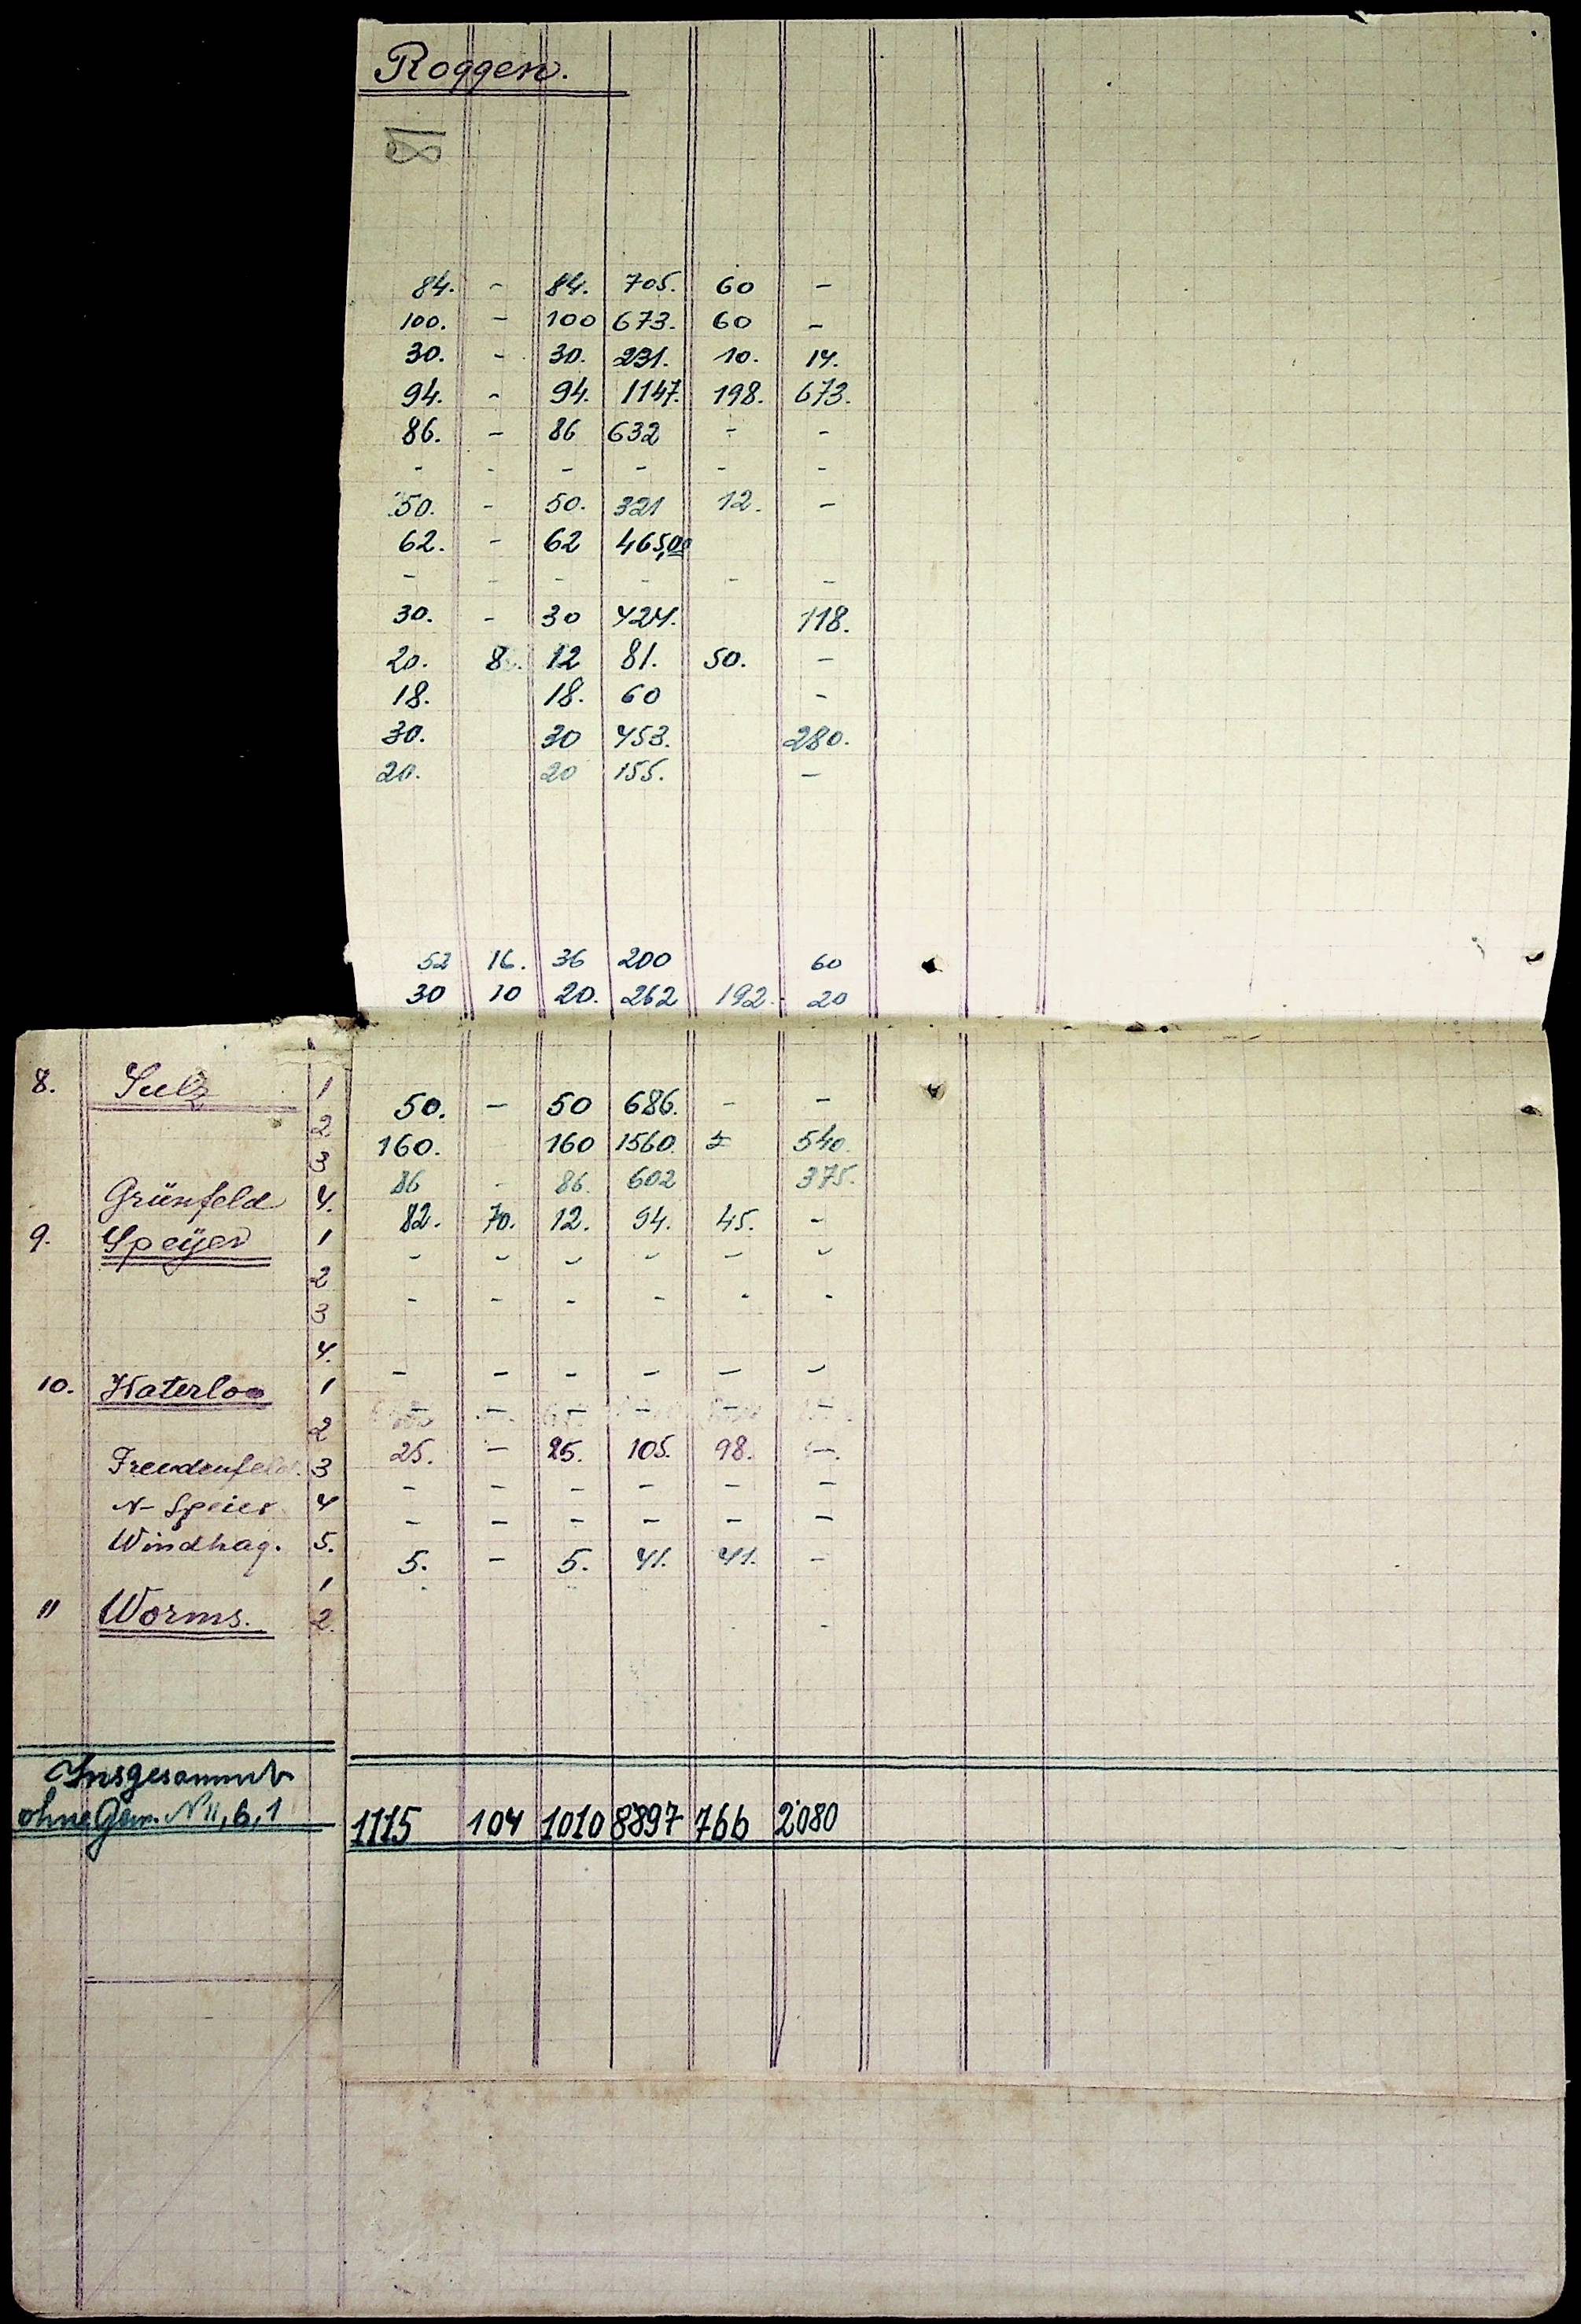 Roggen.
18
84. - 84. 705. 60 -
100. - 100 673. 60 -
30. - 30. 231. 10. 14.
94. - 94. 1147. 198. 673.
86. - 86 632 - -
- - - - - -
50. - 50. 321 12. -
62. - 62 465,00
- - - - - -
30. - 30 424. 118.
20. 8. 12 81. 50. -
18. 18. 60 -
30. 30 453. 280.
20. 20 155. -
52 16. 36 200 60
30 10 20. 262 192. 20
8. Sulz 1 50. - 50 686. - -
2 160. 160 1560. 540.
3 86 - 86. 602 375.
Grünfeld 4. 82. 70. 12. 94. 45. -
9. Speyer 1 - - - - - -
2
3 - - - - - -
4.
10. Waterloo 1 - - - - - -
2 - - - - - -
Freudenfeld. 3 25. - 25. 105. 98. -
N- Speier 4 - - - - - -
Windhag. 5. - - - - - -
1 5. - 5. 41. 41. -
11 Worms. 2. -
Insgesammt
ohne Gem. N 11, 6, 1 1115 104 1010 8897 766 2080